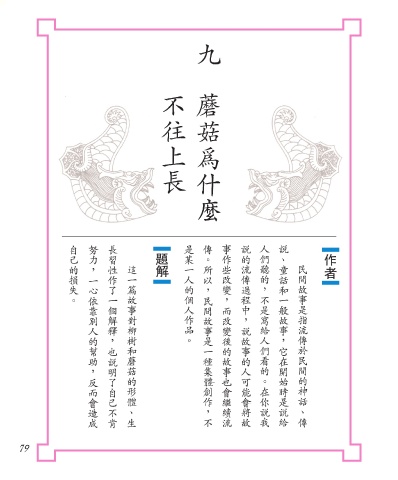 九
蘑菇為什麼
不往上長
作者
民間故事是指流傳於民間的神話、傳
說、童話和一般故事，它在開始時是說給
人們聽的，不是寫給人們看的。在你說我
說的流傳過程中，說故事的人可能會將故
事作些改變，而改變後的故事也會繼續流
傳。所以，民間故事是一種集體創作，不
是某一人的個人作品。
題解
這一篇故事對柳樹和蘑菇的形體、生
長習性作了一個解釋，也說明了自己不肯
努力，一心依靠別人的幫助，反而會造成
自己的損失。
79